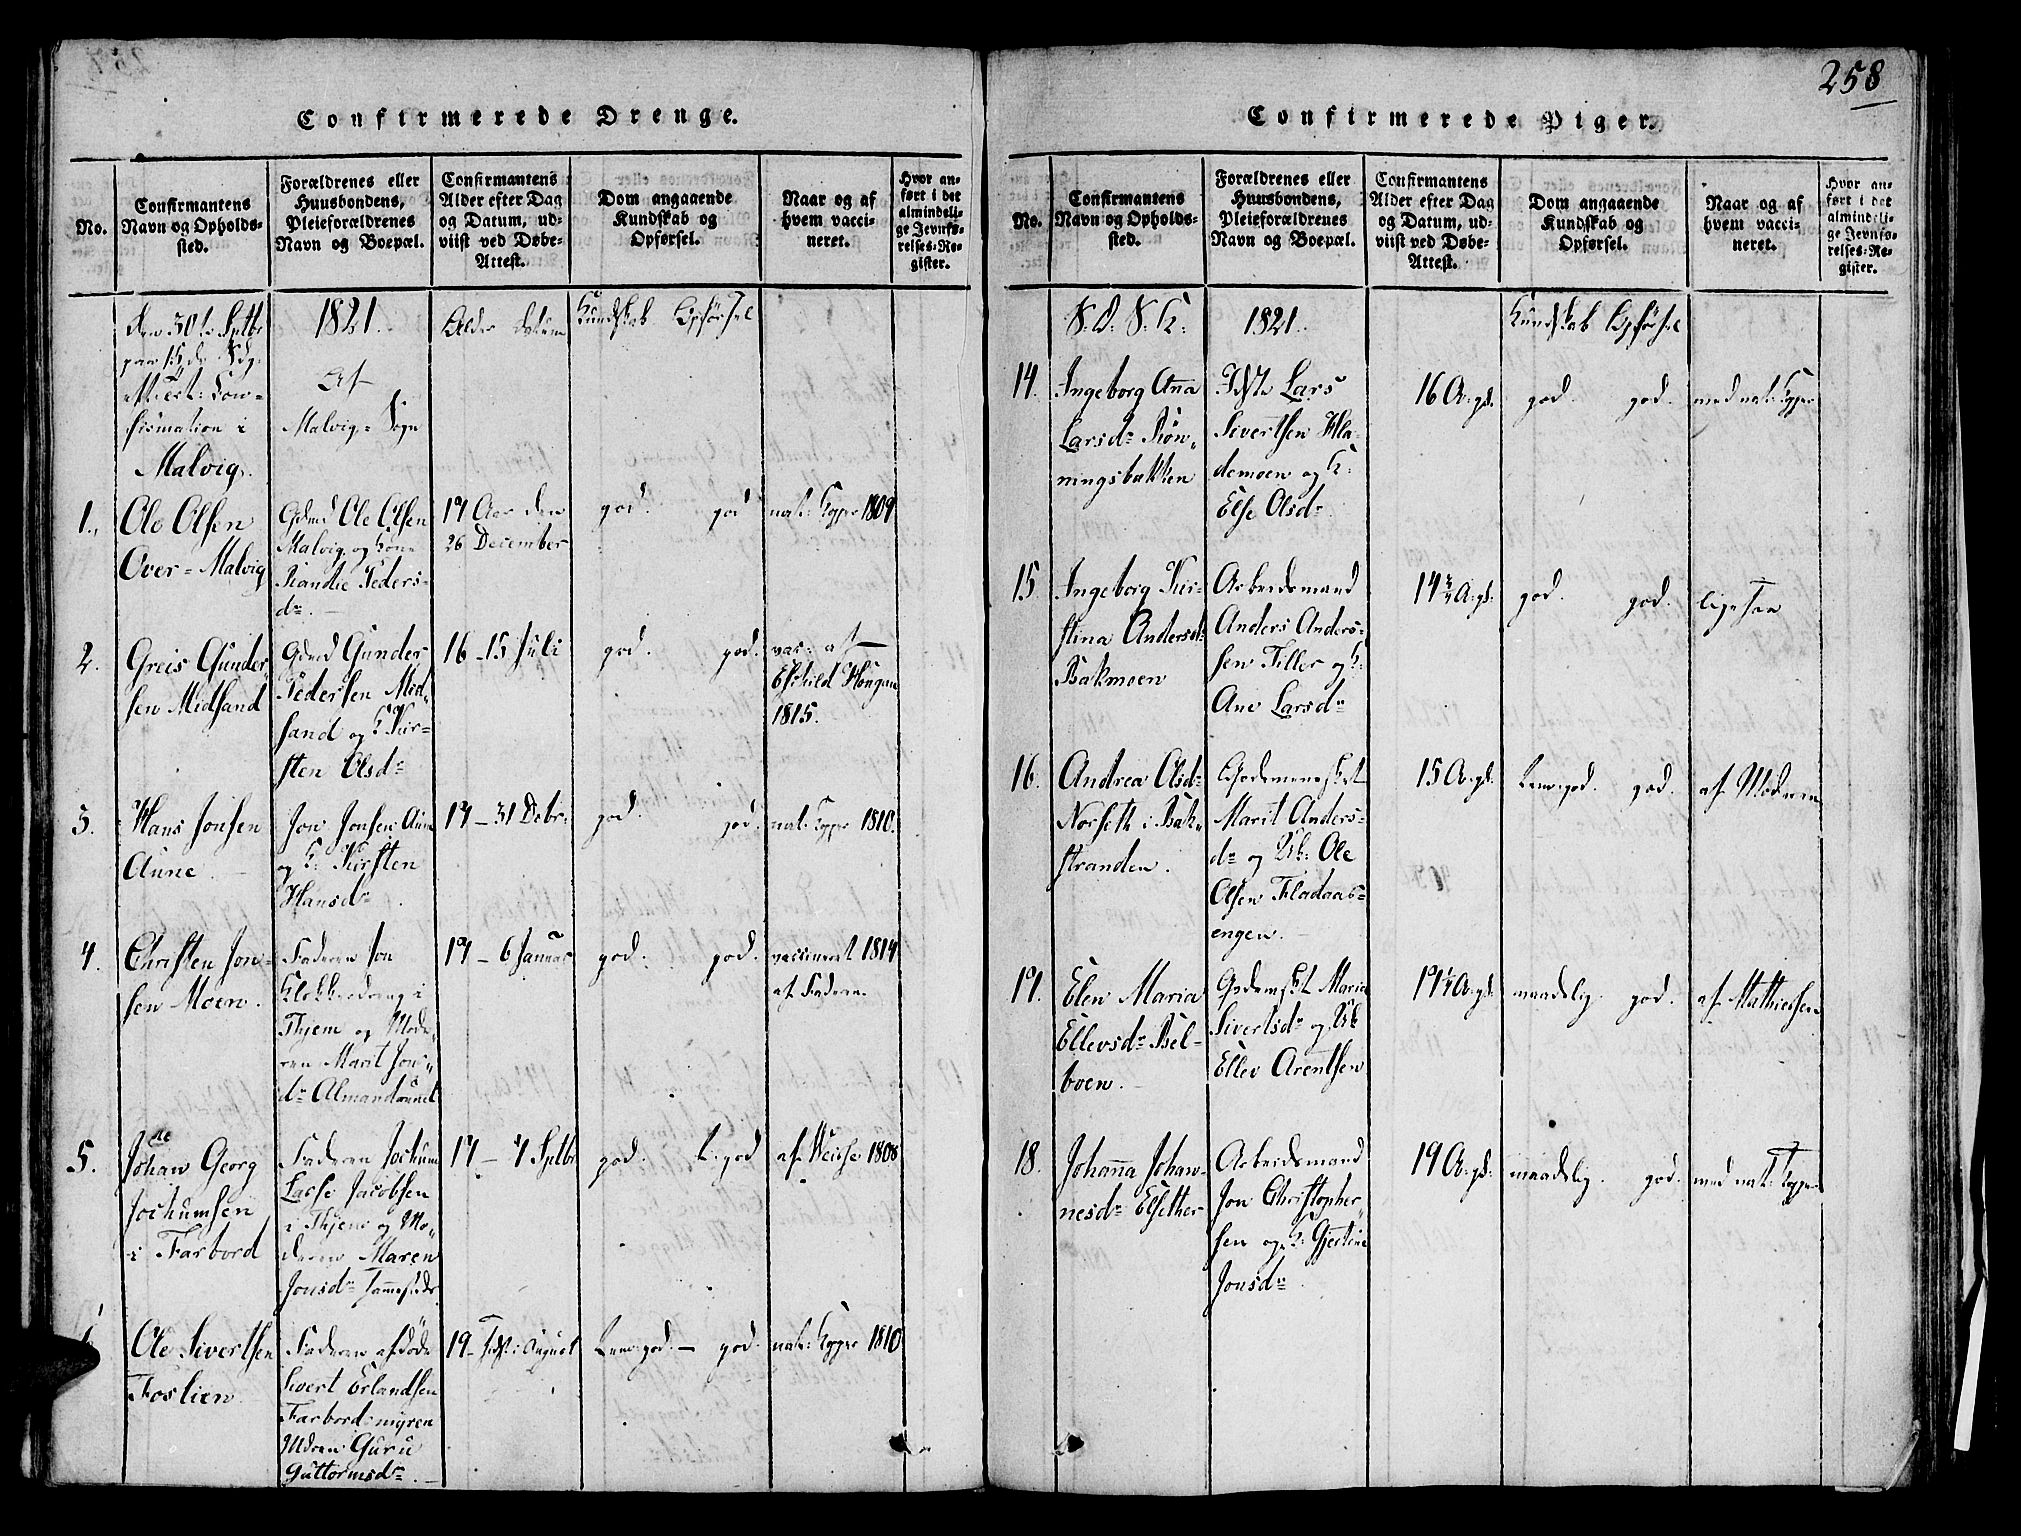 258
Confirmerede Drenge.
No.
Confirmantens
Navn og Opholds-
sted.
Forældrenes eller
Huusbondens,
Pleieforældrenes
Navn og Boepæl.
Confirmantens
Alder efter Dag
og Datum, ud-
viist ved Døbe-
Attest.
Dom angaaende
Kundskab og
Opførsel.
Naar og af
hvem vacci-
neret.
Hvor an-
ført i det
almindeli-
ge Jevnfø-
relses-Re-
gister.
Den 30te Septbr
1821.
Alder Datum
Kundskab Opførsel
paa 15de Sdg.
Con-
firmation i
Malvig.
Af
Malvig-Sogn
1.
Ole Olsen
Over-Malvig
Gdmd Ole Olsen
Malvig og Kone
Randie Peders-
dr.
17 Aar den
26 December
god. god
nat: Kopper 1809
2.
Greis Gunder-
sen Midsand
Gdmd Gunder
Pedersen Mid-
sand og K. Kir-
sten Olsdr
16 - 15 Juli
god. god.
vac: af
Eskild Hougan
1815.
3.
Hans Jonsen
Aune
Jon Jonsen Aune
og K: Kirsten
Hansdr
17 - 31 Debr:
god. god.
nat: Kopper 1810.
4.
Christen Jon-
sen Moen.
Faderen Jon
Klokkedreng i
Thiem og Mode-
ren Marit Jons-
dr Almandrundt
17 - 6 Januar
god. god.
vaccineret 1814
af Faderen.
5.
Johan Georg
Jochumsen
i Farbord
Faderen Jochum
Lasse Jacobsen
i Thiem og Mo-
deren Maren
Jonsdr
17 - 7 Septbr
god. t. god
af Weise 1808
6
Ole Sivertsen
Foslien
Faderen afdöde
Sivert Erlandsen
Farbordsmyren
Mdren Guru
Guttormsdr
19 - August
Temgod. - god.
nat: Kopper 1810
Confirmerede Piger.
No.
Confirmantens
Navn og Opholds-
sted.
Forældrenes eller
Huusbondens,
Pleieforældrenes
Navn og Boepæl.
Confirmantens
Alder efter Dag
og Datum, ud-
viist ved Døbe-
Attest.
Dom angaaende
Kundskab og
Opførsel.
Naar og af
hvem vacci-
neret.
Hvor an-
ført i det
almindeli-
ge Jevnfø-
relses-Re-
gister.
S: D: S: K:
1821.
Kundskab Opførsel
14.
Ingeborg Anna
Larsdr Røn-
ningsbakken
Lars
Sivertsen Hla-
demoen og K:
Else Olsdr
16 A: gl.
god. god.
med nat: Kopper
15.
Ingeborg Kir-
stina Andersdr
Bakmoen
Arbeidsmand
Anders Anders-
sen Tiller og K:
Ane Larsdr
14¾ A: gl:
god. god.
ligesaa
16.
Andrea Olsdr
Norseth i Bak-
stranden.
Marit Anders-
dr og Ub: Ole
Olsen Fladaas-
engen.
15 A: gl.
Temgod. god.
af Moderen
17.
Elen Maria
Ellevsdr Bel-
boen.
Maria
Sivertsdr og Ub
Ellev Arentsen
17½ A: gl:
maadelig. god.
af Mathiesen
18.
Johanna Johan-
nesdr Elsether
Arbeidsmand
Jon Christopher-
sen og K: Gjertine
Jonsdr
19 A: gl:
maadelig. god.
med nat: Kopper